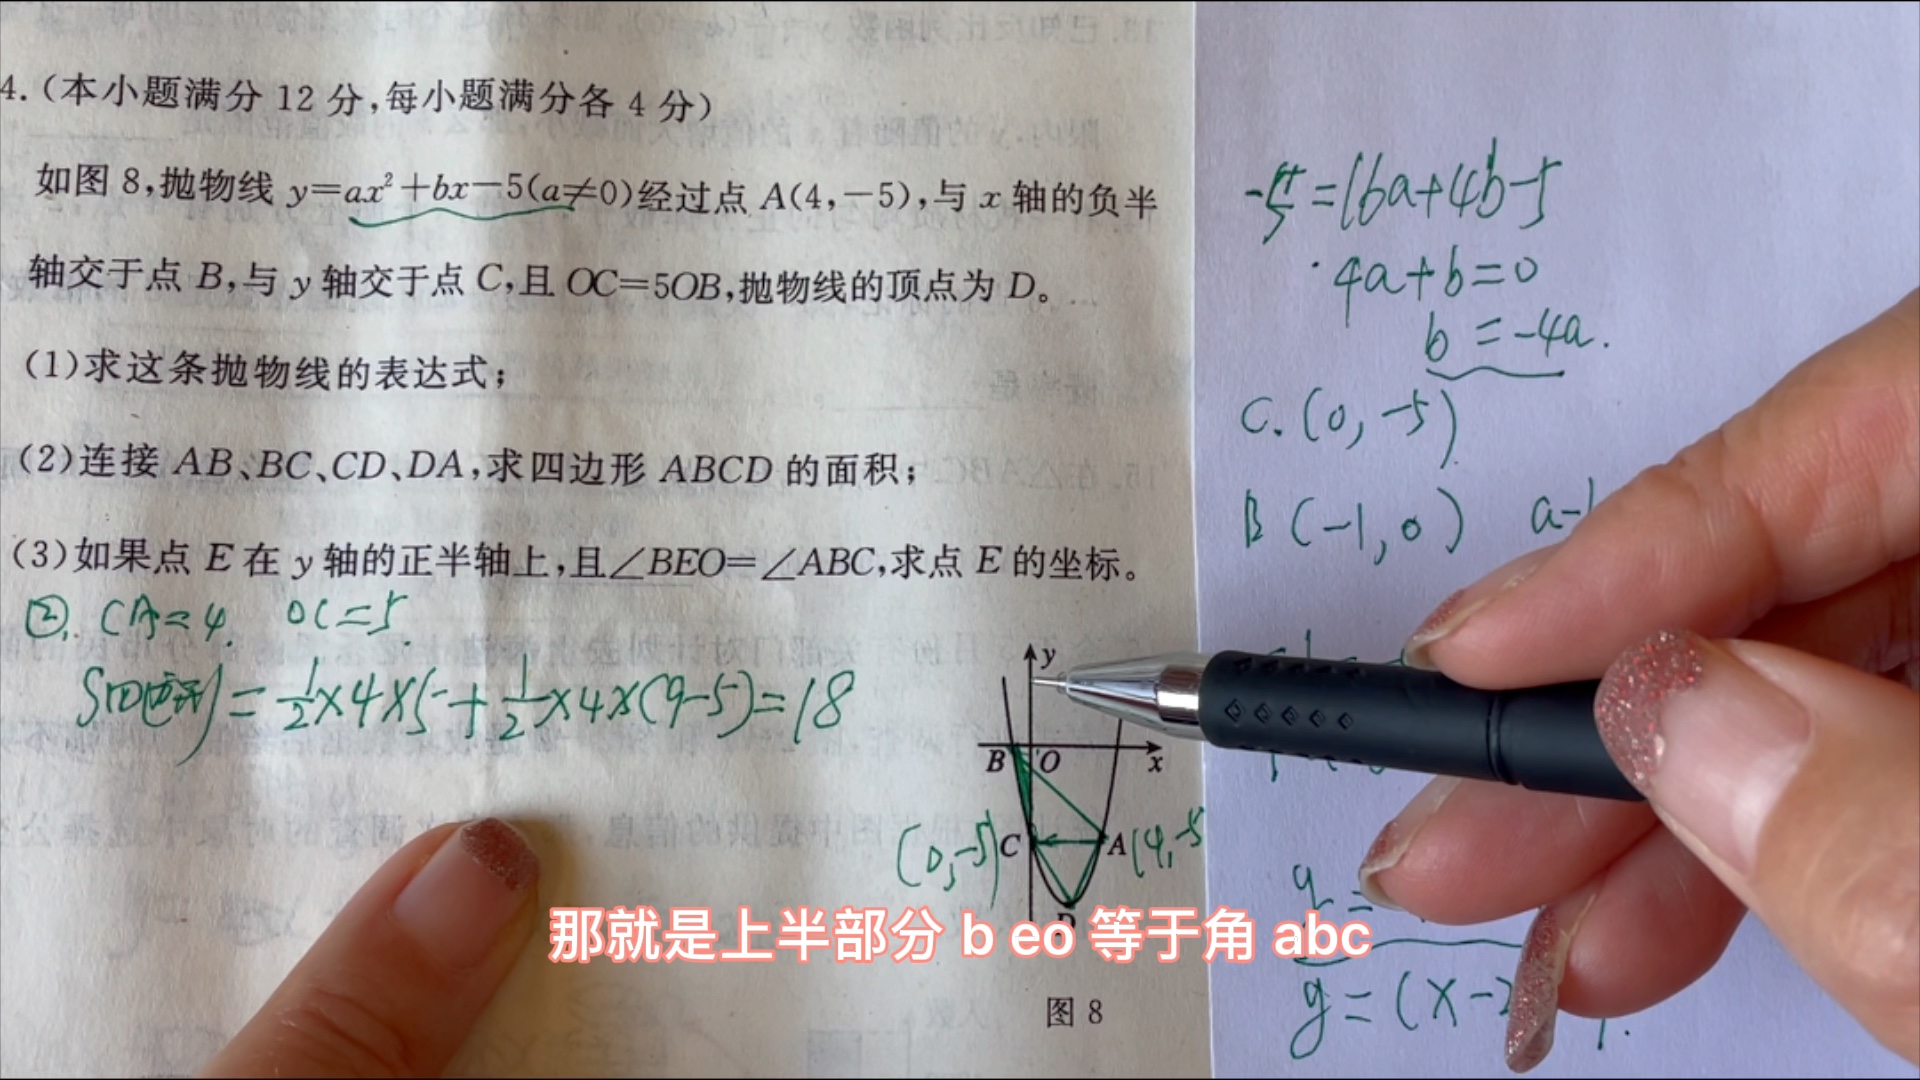 4.(本小题满分 12 分,每小题满分各 4 分)
如图 8,抛物线 y=ax²+bx-5(a≠0)经过点 A(4,-5),与 x 轴的负半
轴交于点 B,与 y 轴交于点 C,且 OC=5OB,抛物线的顶点为 D。
(1)求这条抛物线的表达式;
(2)连接 AB、BC、CD、DA,求四边形 ABCD 的面积;
(3)如果点 E 在 y 轴的正半轴上,且∠BEO=∠ABC,求点 E 的坐标。
②. CA=4. OC=5.
=½×4×5+½×4×(9-5)=18
y
B O x
(0,-5) C A (4,-5
D
图 8
-5=16a+4b-5
4a+b=0
b=-4a.
C.(0,-5)
B(-1,0)
y=(x-2
那就是上半部分 b eo 等于角 abc